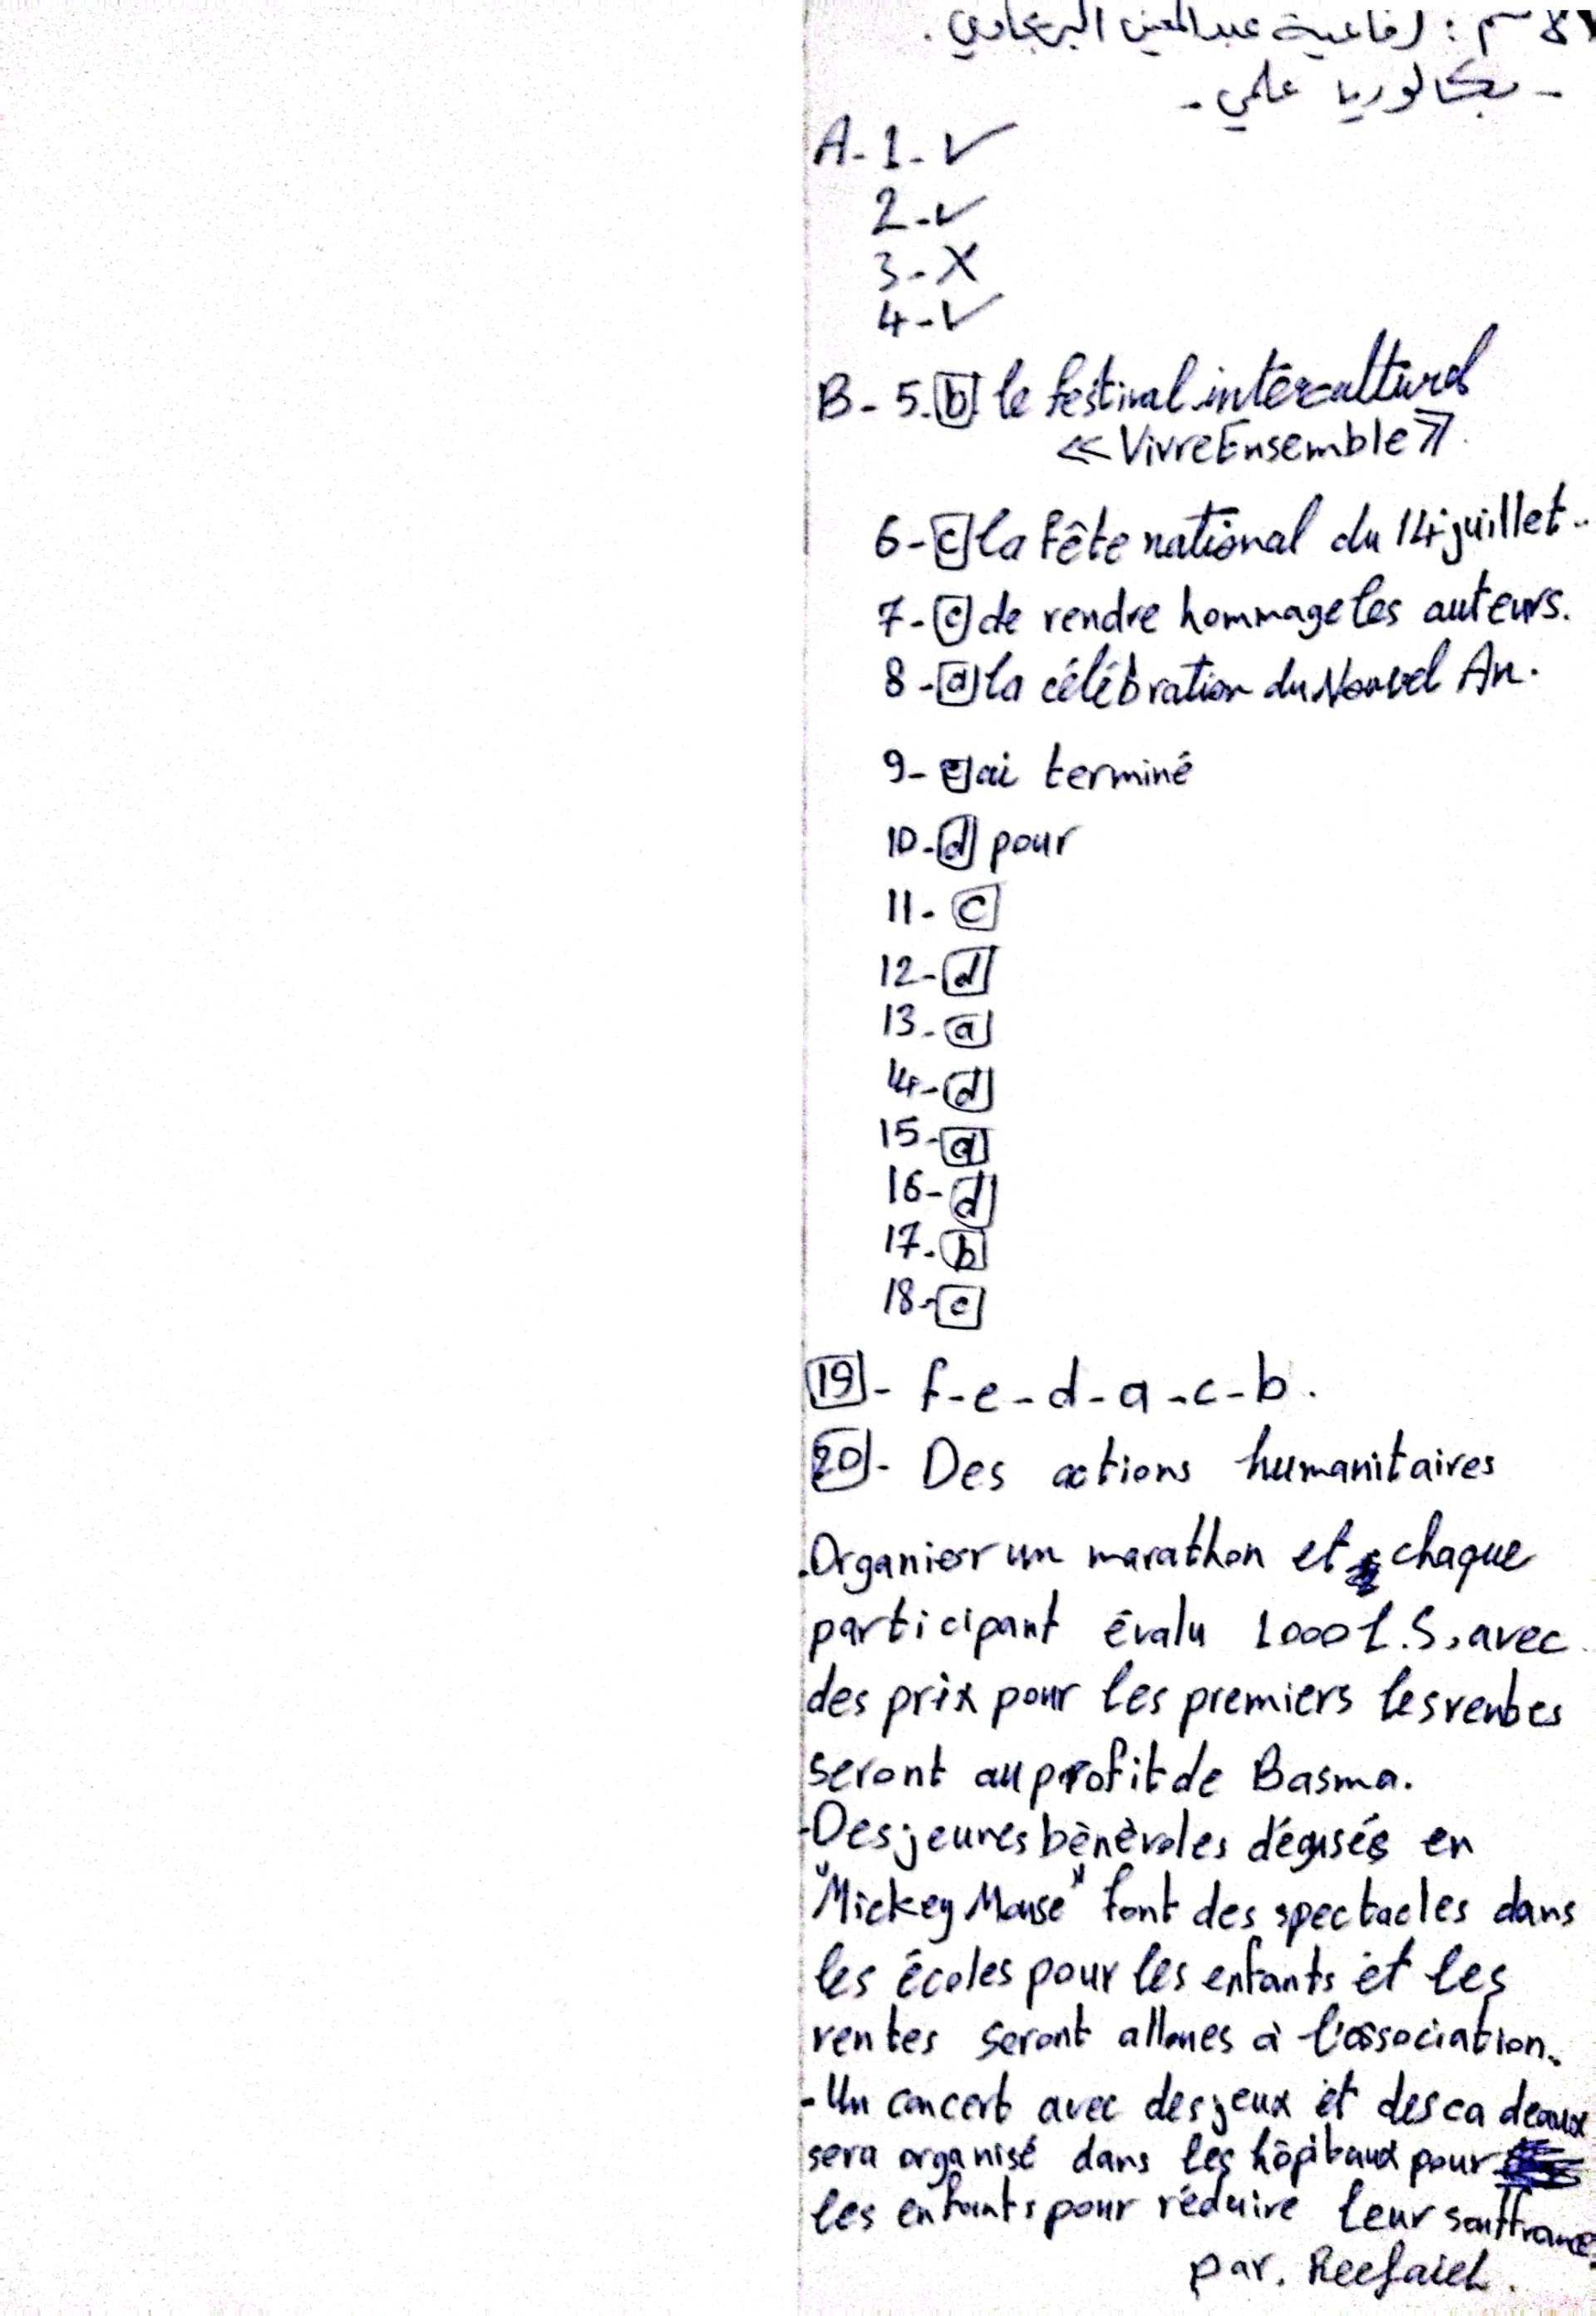 الاسم : رفاعية عبد المعين البرغاوي .
- بكالوريا علمي -
A- 1- ✓
2- ✓
3- X
4- ✓
B- 5. b le festival interculturel
<< VivreEnsemble >>.
6- c la fête national du 14 juillet..
7- c de rendre hommage les auteurs.
8- a la célébration du Nouvel An.
9- c ai terminé
10- d pour
11- c
12- d
13- a
14- d
15- a
16- d
17- b
18- c
19 - f-e-d-a-c-b.
20 - Des actions humanitaires
.Organiser un marathon et chaque
participant évalu 1000 L.S, avec
des prix pour les premiers les ventes
seront au profit de Basma.
-Des jeunes bènèvoles dégusés en
"Mickey Mouse" font des spectacles dans
les écoles pour les enfants et les
ventes seront alloues à l'association.
-Un concert avec des jeux et des cadeaux
sera organisé dans les hôpitaux pour
les enfants pour réduire leur souffrance.
par. Reefaieh.